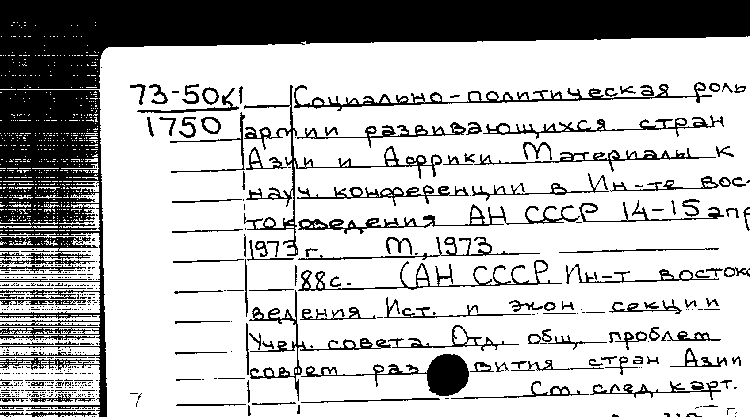 73-50к Социально-политическая роль
1750 армии развивающихся стран
Азии и Африки. Материалы к
науч. конференции в Ин-те вос-
токоведения АН СССР 14-15 апр
1973 г. М., 1973.
88с. (АН СССР. Ин-т востоко
ведения. Ист. и экон. секции
Учен. совета. Отд. общ. проблем
соврем. развития стран Азии
См. след. карт.